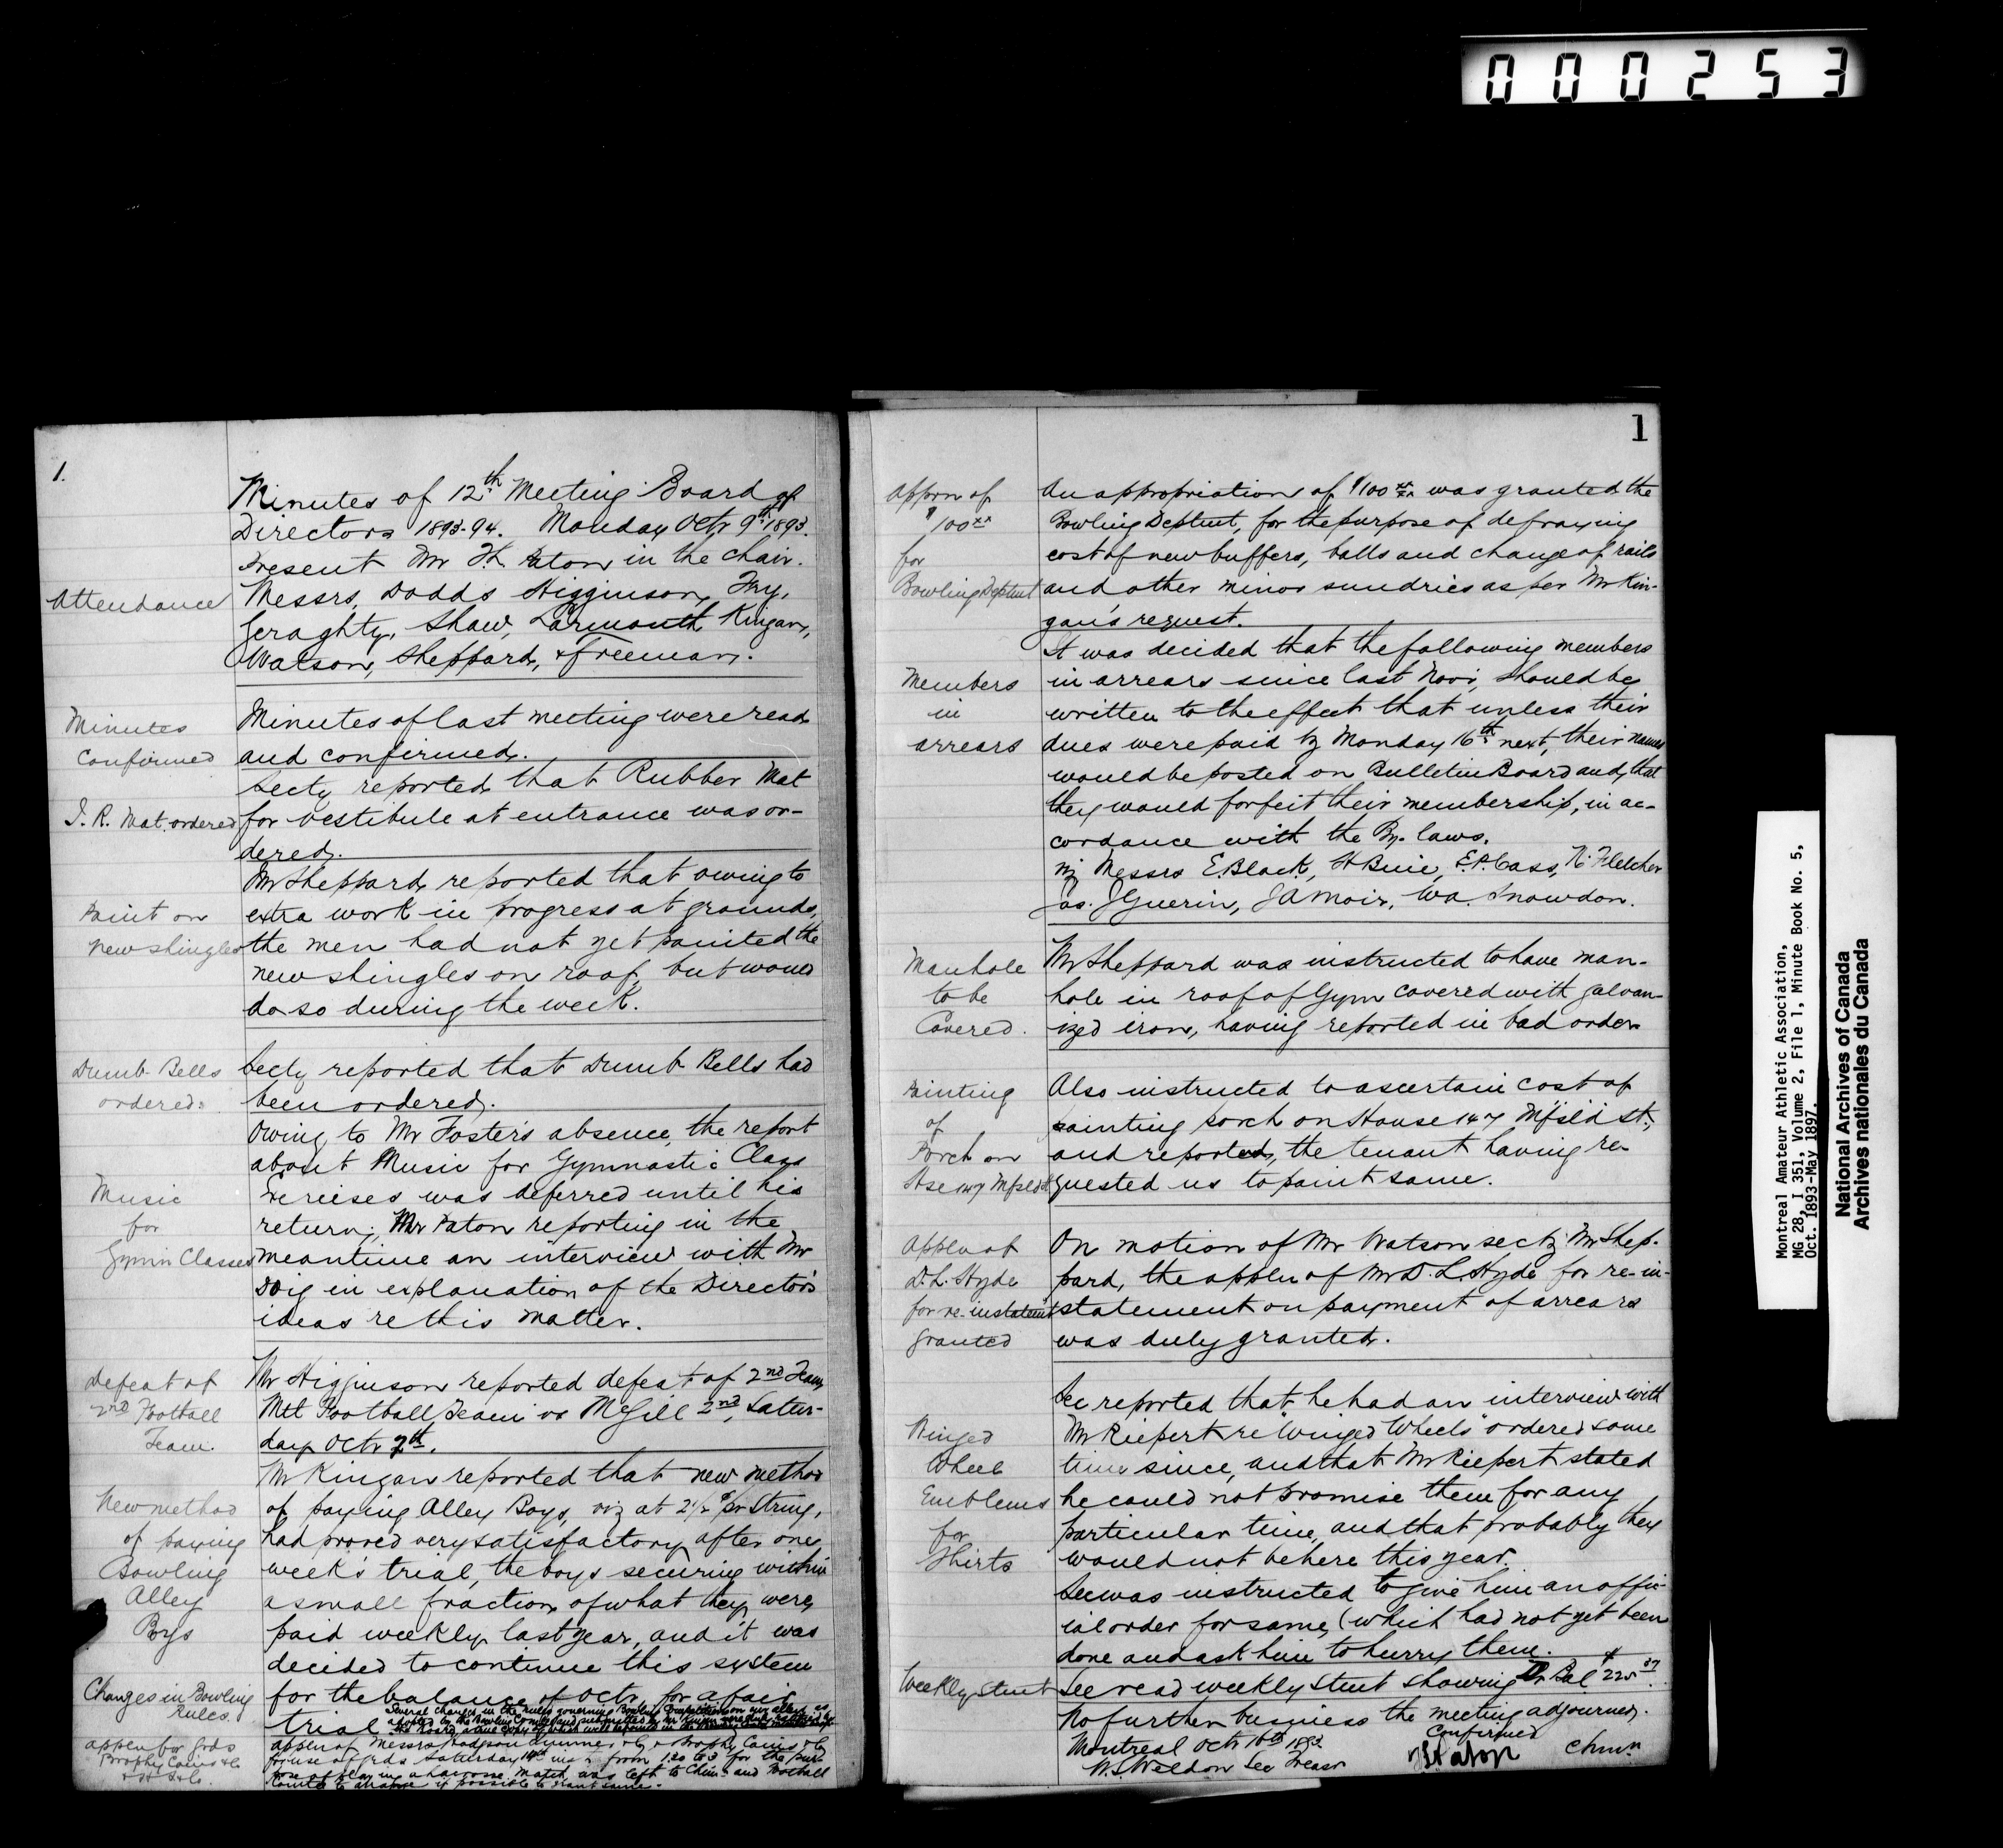 000253
1.
Minutes of 12th Meeting Board of
Directors 1893-94. Monday Octr 9th 1893.
Present Mr T.L. Paton in the chair.
Attendance
Messrs. Dodds Higginson, Fry,
Geraghty, Shaw, Larmonth Kingan,
Watson, Sheppard, & Freeman.
Minutes
Confirmed
Minutes of last meeting were read
and confirmed.
I. R. Mat ordered
Secty reported that Rubber Mat
for vestibule at entrance was or-
dered.
Paint on
new shingles
Mr Sheppard reported that owing to
extra work in progress at grounds,
the men had not yet painted the
new shingles on roof, but would
do so during the week.
Dumb Bells
ordered.
Secty reported that Dumb Bells had
been ordered.
Music
for
Gymn Classes
Owing to Mr Foster's absence, the report
about Music for Gymnastic Class
Exercises was deferred until his
return; Mr Paton reporting in the
meantime an interview with Mr
Doig in explanation of the Director's
ideas re this matter.
Defeat of
2nd Football
Team.
Mr Higginson reported defeat of 2nd Team
Mtl Football Team vs McGill 2nd, Satur-
day Octr 7th.
New method
of paying
Bowling
Alley
Boys
Mr Kingan reported that new method
of paying Alley Boys, viz at 2½ c per String,
had proved very satisfactory after one
week's trial, the boys securing within
a small fraction of what they were
paid weekly last year, and it was
decided to continue this system
for the balance of Octr for a fair
trial.
Changes in Bowling
Rules.
Several changes in the rules governing Bowling Competitions on our alleys as
adopted by the Bowling Comtee and submitted by Mr Kingan were duly ratified by
the Board, a true copy of which will
applen for gds
Brophy Cains & Co
& H S & Co.
Applen of Messrs Hodgson Sumner & Co & Brophy Cains & Co
for use of grds Saturday 14th inst from 1.30 to 3 for the pur-
pose of playing a Lacrosse Match, was left to Chmn and Football
Comtee to arrange if possible to grant same.
1
Apprn of
$100xx
for
Bowling Deptmt
An appropriation of $100 xx/xx was granted the
Bowling Deptmt, for the purpose of defraying
cost of new buffers, balls and change of rails
and other minor sundries as per Mr Kin-
gan's request.
Members
in
arrears
It was decided that the following members
in arrears since last Novr, should be
written to the effect that unless their
dues were paid by Monday 16th next, their names
would be posted on Bulletin Board and, that
they would forfeit their membership, in ac-
cordance with the By-laws.
viz Messrs E. Black, H Buie, E.P. Cass, N. Fletcher
Jas. J Guerin, J A Moir, Wa. Snowdon.
Manhole
to be
Covered.
Mr Sheppard was instructed to have man-
hole in roof of Gym covered with galvan-
ized iron, having reported in bad order
Painting
of
Porch on
Hse 147 Mfseld st
Also instructed to ascertain cost of
painting porch on House 147 M'f'sld st.,
and reported, the tenant having re-
quested us to paint same.
Applen of
D. L. Hyde
for re-instatemt
granted
On motion of Mr Watson sectg Mr Shep-
pard, the applen of Mr D. L. Hyde for re-in-
statement on payment of arrears
was duly granted.
Winged
Wheel
Emblems
for
Shirts
Sec reported that he had an interview with
Mr Riepert re "Winged Wheels" ordered some
time since, and that Mr Riepert stated
he could not promise them for any
particular time, and that probably they
would not be here this year.
Sec was instructed to give him an offic-
ial order for same, (which had not yet been
done and ask him to hurry them.
Weekly Stmt
Sec read weekly Stmt showing Dr Bal $225 37.
No further business the meeting adjourned.
Confirmed
Montreal Octr 16th 1893.
T L Paton Chmn
W. S. Weldon Sec Treasr
Montreal Amateur Athletic Association,
MG 28, I 351, Volume 2, File 1, Minute Book No. 5,
Oct. 1893-May 1897.
National Archives of Canada
Archives nationales du Canada